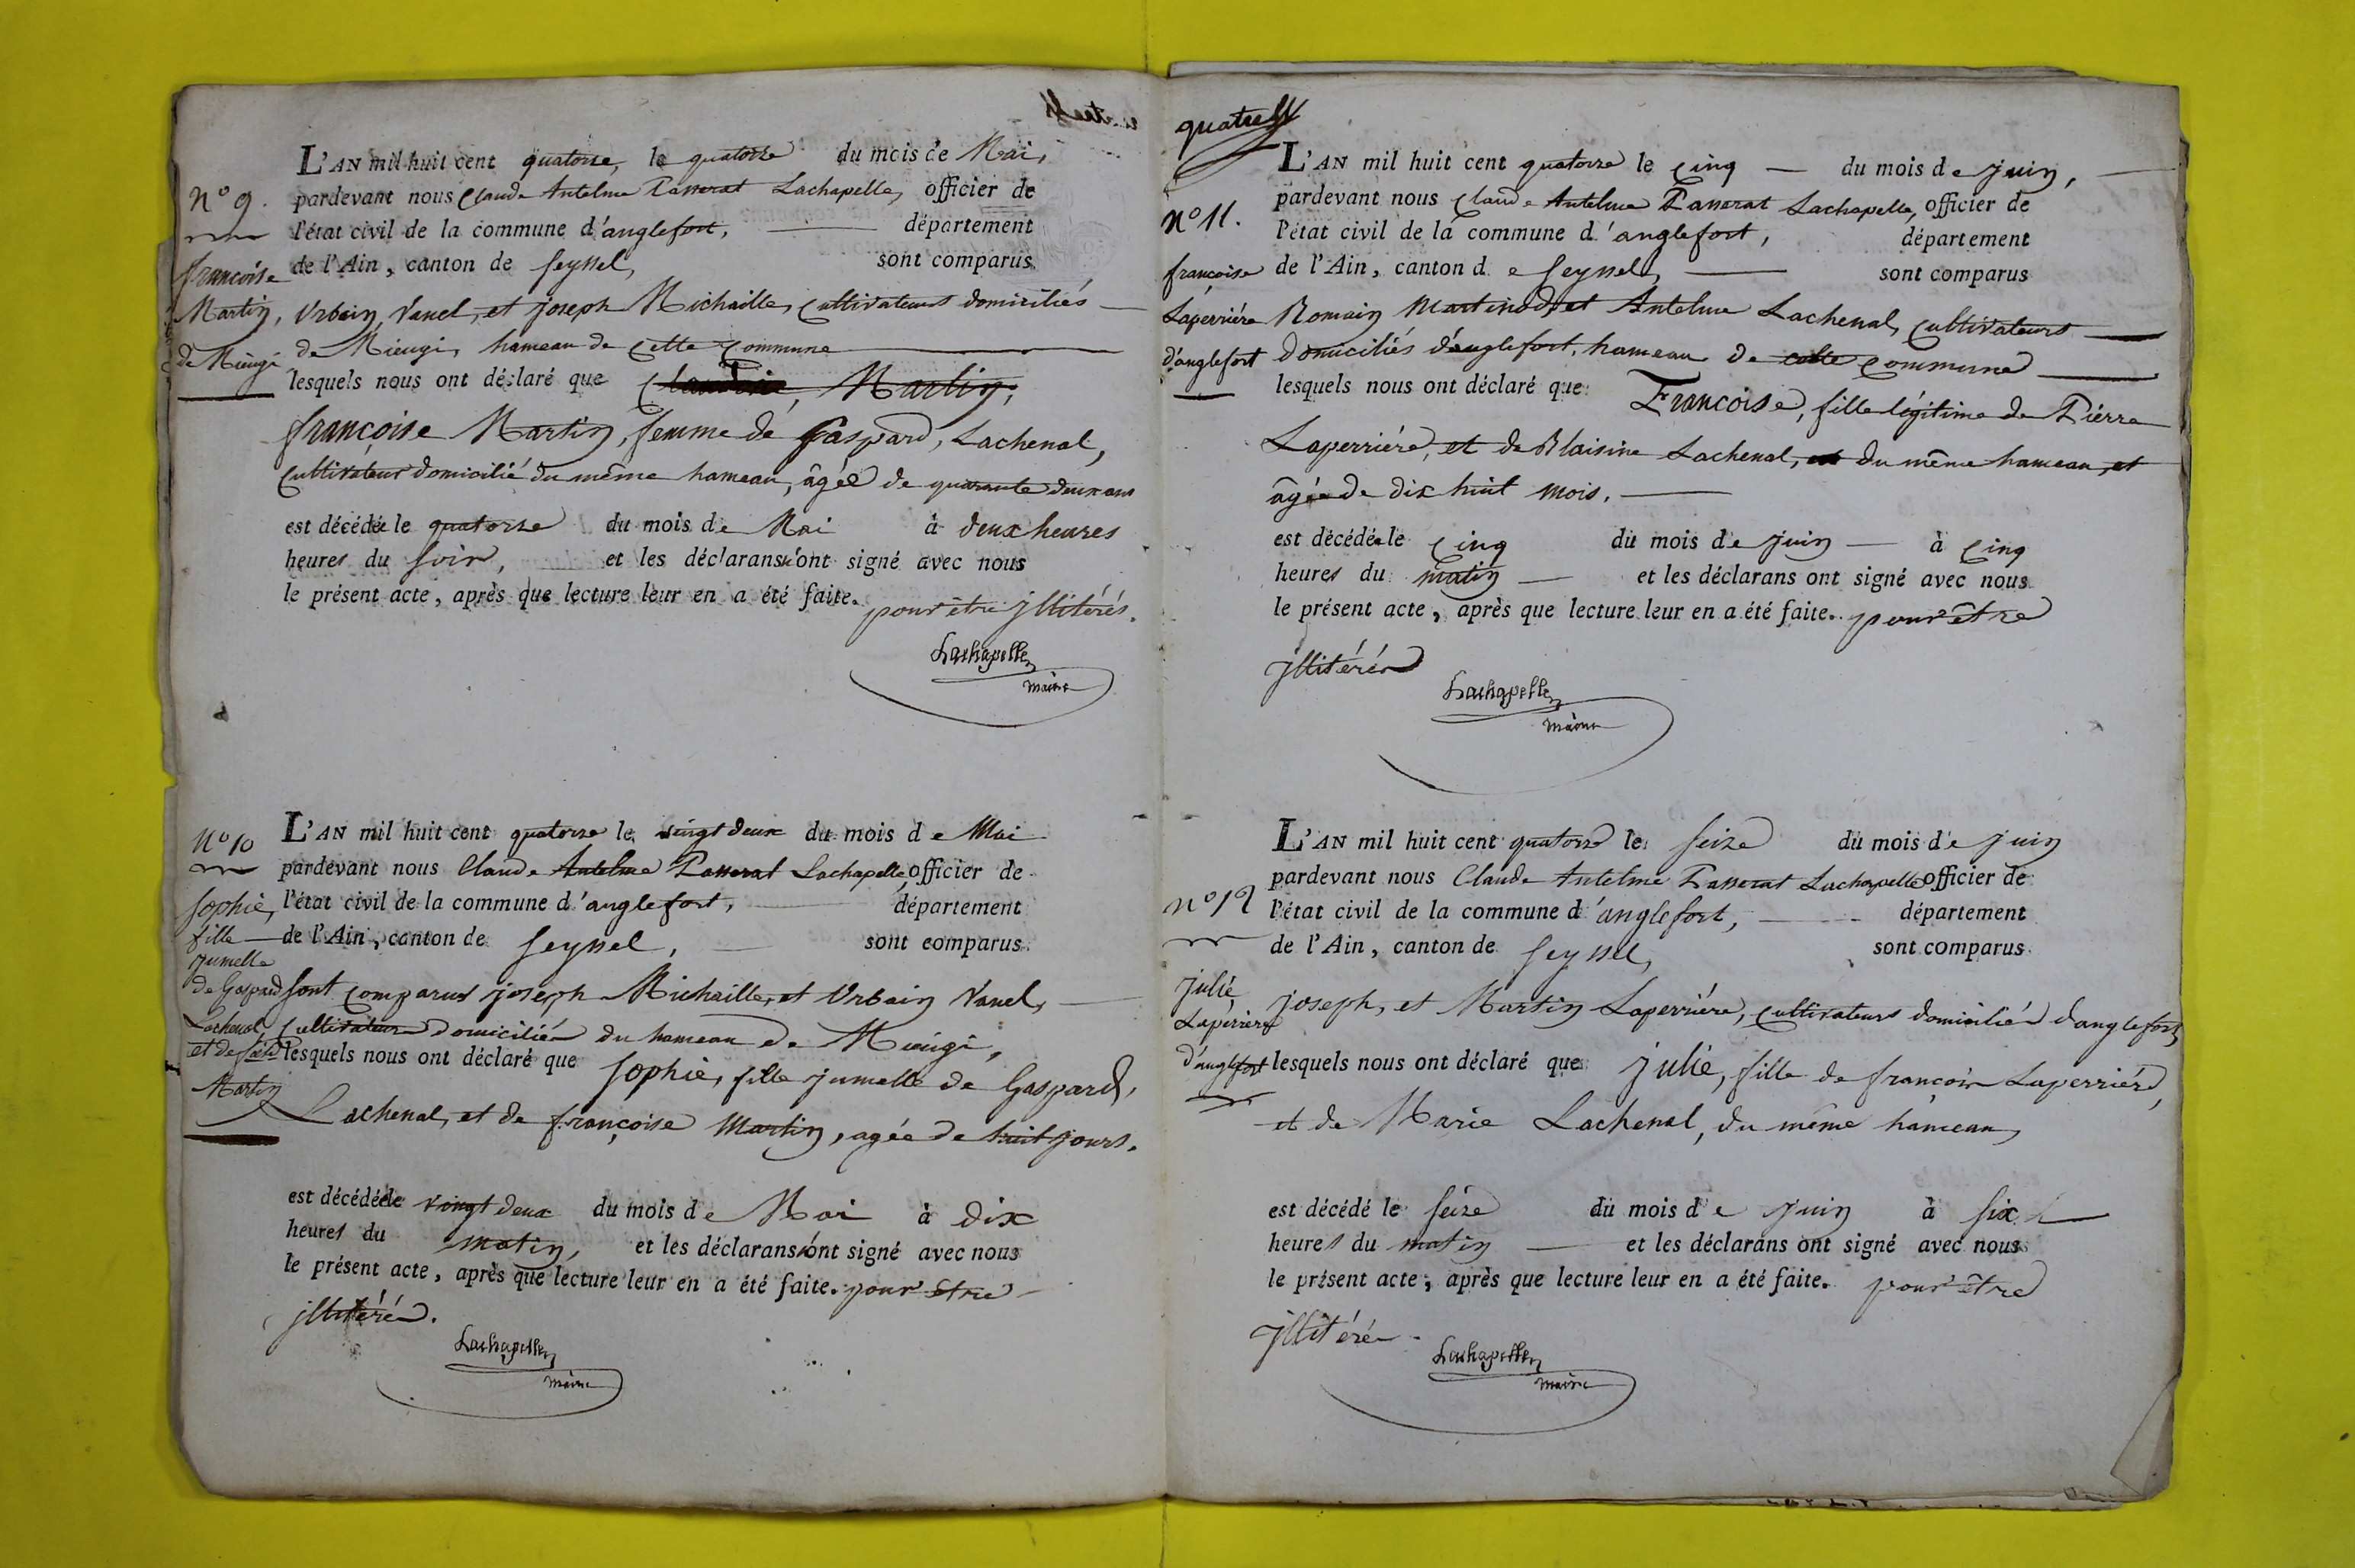 L'AN mil huit cent quatorze, le quatorze du mois de Mai,
N° 9. pardevant nous Claude Antelme Passerat Lachapelle, officier de
l'état civil de la commune d'anglefort, département
françoise de l'Ain, canton de Seyssel, sont comparus
Martin, Urbain Vanel, et joseph Michaille, cultivateurs domiciliés
de Mieugi de Mieugi, hameau de cette commune
lesquels nous ont déclaré que Martin,
françoise Martin, femme de Gaspard, Lachenal,
cultivateur domicilié du même hameau, âgée de quarante deux ans
est décédée le quatorze du mois de Mai à deux heures
heures du soir, et les déclarans n'ont signé avec nous
le présent acte, après que lecture leur en a été faite. pour être jllitérés.
Lachapelle
maire
N° 10 L'AN mil huit cent quatorze le vingt deux du mois de Mai
pardevant nous Claude Antelme Passerat Lachapelle, officier de
Sophie, l'état civil de la commune d'anglefort, département
fille de l'Ain, canton de Seyssel, sont comparus
jumelle
de Gaspard sont comparus joseph Michaille, et Urbain Vanel,
Lachenal, cultivateurs domiciliés du hameau de Mieugi,
et de lesquels nous ont déclaré que Sophie, fille jumelle de Gaspard,
Martin Lachenal, et de françoise Martin, agée de huit jours.
est décédée le vingt deux du mois de Mai à dix
heures du matin, et les déclarans n'ont signé avec nous
le présent acte, après que lecture leur en a été faite. pour être
jllitérés.
Lachapelle
maire
quatre
L'AN mil huit cent quatorze le cinq du mois de juin,
pardevant nous Claude Antelme Passerat Lachapelle, officier de
N° 11. l'état civil de la commune d'anglefort, département
françoise de l'Ain, canton de Seyssel, sont comparus
Laperriére Romain Martinod, et Antelme Lachenal, cultivateurs
d'anglefort domiciliés d'anglefort, hameau de cette commune
lesquels nous ont déclaré que Francoise, fille légitime de Piérre
Laperriére, et de Blaisine Lachenal, du même hameau, et
âgée de dix huit mois.
est décédée le cinq du mois de juin à cinq
heures du matin et les déclarans ont signé avec nous
le présent acte, après que lecture leur en a été faite. pour être
jllitérés
Lachapelle
maire
L'AN mil huit cent quatorze le seize du mois de juin
pardevant nous Claude Antelme Passerat Lachapelle officier de
N° 12 l'état civil de la commune d'anglefort, département
de l'Ain, canton de Seyssel, sont comparus
julie,
Lapérriere joseph, et Martin Laperriére, cultivateurs domiciliés d'anglefort,
d'anglefort lesquels nous ont déclaré que julie, fille de françois Laperriére,
et de Marie Lachenal, du même hameau,
est décédé le seize du mois de juin à six
heures du matin et les déclarans ont signé avec nous
le présent acte, après que lecture leur en a été faite. pour être
jllitérés.
Lachapelle
maire